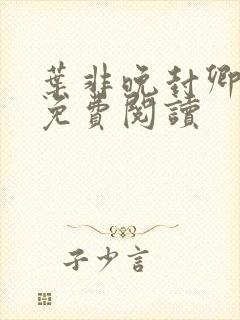 葉非晚封卿
免費閱讀
子少言